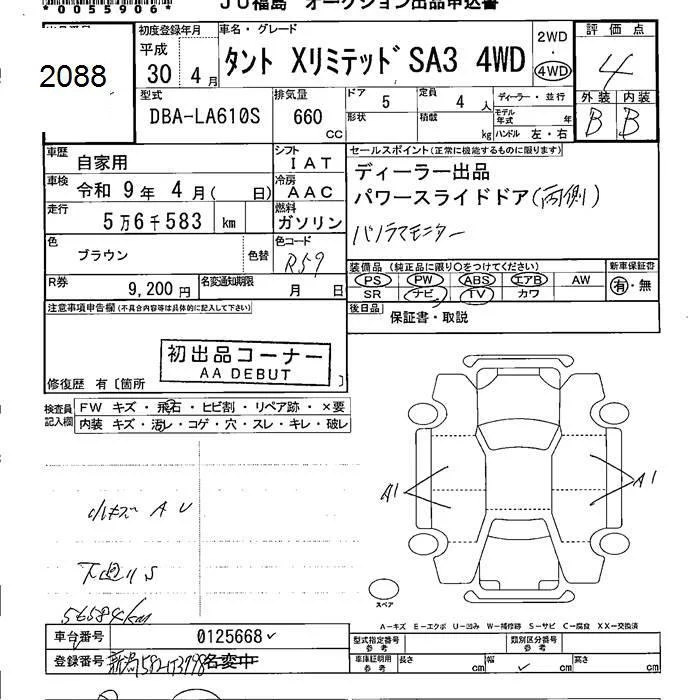 *0055906*
JU福島 オークション出品申込書
2088
初度登録年月
平成
30 4月
車名・グレード
タント XリミテッドSA3 4WD
2WD
4WD
評価点
4
外装 内装
B B
型式
DBA-LA610S
排気量
660
CC
ドア
5
定員
4 人
形状
積載
kg
ディーラー・並行
モデル年式 年
ハンドル 左・右
車歴
自家用
シフト
IAT
車検
令和 9年 4月( 日)
冷房
AAC
走行
5万6千583 km
燃料
ガソリン
色
ブラウン
色替
色コード
R59
R券
9,200 円
名変通知期限
月 日
セールスポイント(正常に機能するものに限ります)
ディーラー出品
パワースライドドア(両側)
パノラマモニター
装備品(純正品に限り○をつけてください)
PS PW ABS エアB AW
SR ナビ TV カワ
新車保証書
有・無
後日品
保証書・取説
注意事項申告欄(不具合内容等は具体的に記入して下さい)
初出品コーナー
AA DEBUT
修復歴 有〔箇所 〕
検査員記入欄
FW キズ・飛石・ヒビ割・リペア跡・×要
内装 キズ・汚レ・コゲ・穴・スレ・キレ・破レ
小キズ AU
下廻りS
56584km
A1
A1
スペア
A-キズ E-エクボ U-凹み W-補修跡 S-サビ C-腐食 XX-交換済
車台番号
0125668
登録番号
名変中
型式指定番号
参考
類別区分番号
参考
車庫証明用
参考
長さ cm
幅 cm
高さ cm